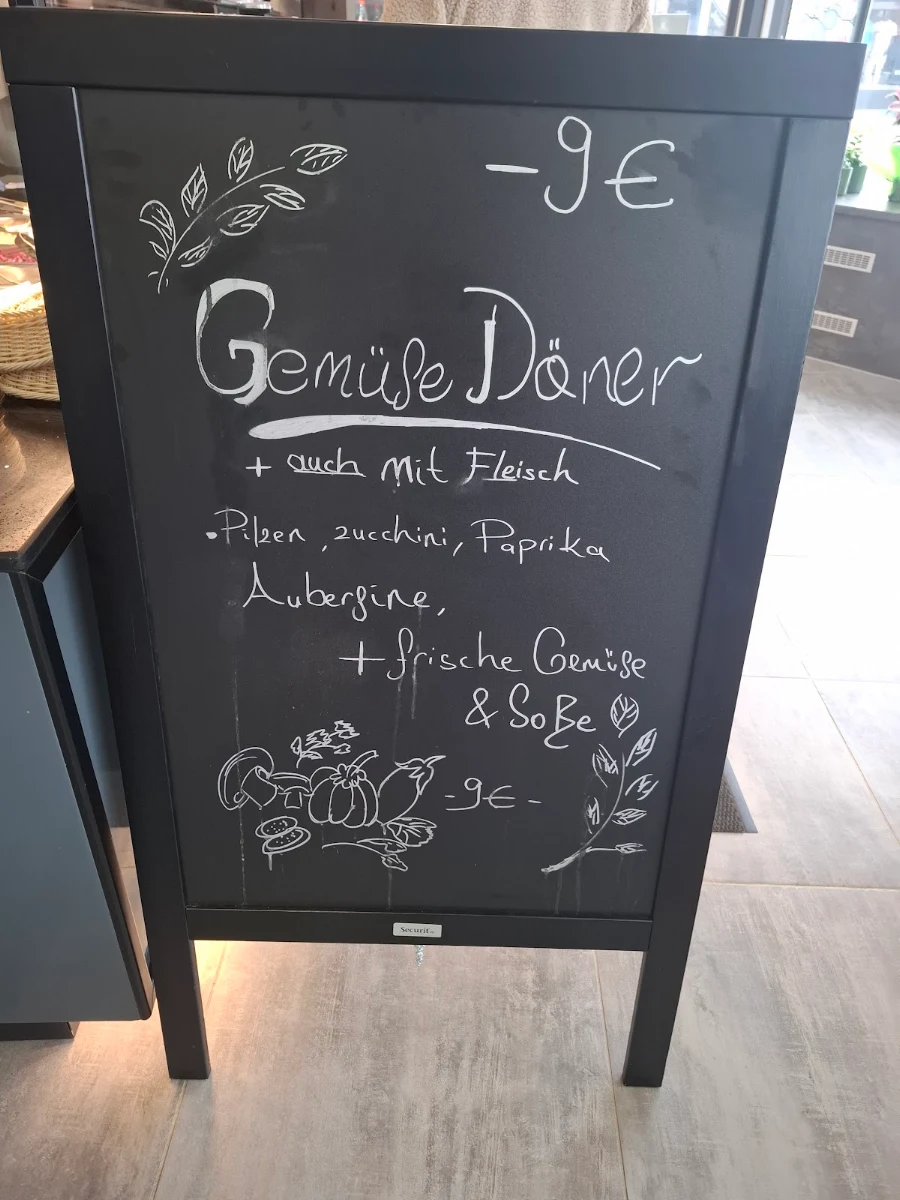 -9€
Gemüße Döner
+ auch mit Fleisch
•Pilzen, zucchini, Paprika
Aubergine,
+ frische Gemüße
& Soße
-9€-
Securit